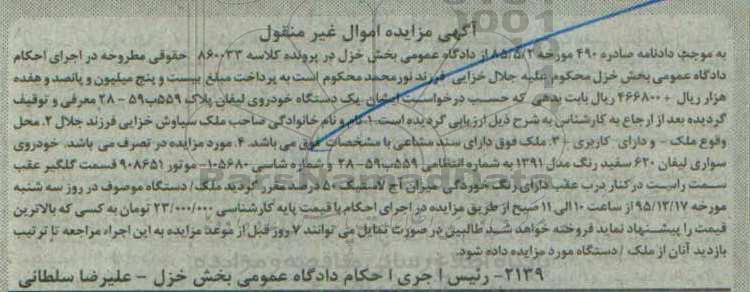 آگهی مزایده اموال غیر منقول
به موجب دادنامه صادره ۴۹۰ مورخه ۸۵/۵/۲ از دادگاه عمومی بخش خزل در پرونده کلاسه ۸۶۰۰۳۳ حقوقی مطروحه در اجرای احکام
دادگاه عمومی بخش خزل محکوم علیه جلال خزایی فرزند نورمحمد محکوم است به پرداخت مبلغ بیست و پنج میلیون و پانصد و هفده
هزار ریال + ۴۶۶۸۰۰ ریال بابت بدهی که حسب درخواست ایشان یک دستگاه خودروی لیفان پلاک ۵۵۹ب۵۹ – ۲۸ معرفی و توقیف
گردیده بعد از ارجاع به کارشناس به شرح ذیل ارزیابی گردیده است. ۱. نام و نام خانوادگی صاحب ملک سیاوش خزایی فرزند جلال ۲. محل
وقوع ملک – و دارای کاربری ۳. ملک فوق دارای سند مشاعی با مشخصات فوق می باشد. ۴. مورد مزایده در تصرف می باشد. خودروی
سواری لیفان ۶۲۰ سفید رنگ مدل ۱۳۹۱ به شماره انتظامی ۵۵۹ب۵۹–۲۸ و شماره شاسی ۱۰۵۶۸۰– موتور ۹۰۸۶۵۱ قسمت گلگیر عقب
سمت راست در کنار درب عقب دارای رنگ خوردگی میزان آج لاستیک ۵۰ درصد مقرر گردید ملک/ دستگاه موصوف در روز سه شنبه
مورخه ۹۵/۱۲/۱۷ از ساعت ۱۰ الی ۱۱ صبح از طریق مزایده در اجرای احکام با قیمت پایه کارشناسی ۲۳/۰۰۰/۰۰۰ تومان به کسی که بالاترین
قیمت را پیشنهاد نماید فروخته خواهد شد طالبین در صورت تمایل می توانند ۷ روز قبل از موعد مزایده به این اجراء مراجعه تا ترتیب
بازدید آنان از ملک / دستگاه مورد مزایده داده شود.
۲۱۳۹– رئیس اجرای احکام دادگاه عمومی بخش خزل – علیرضا سلطانی
ParsNamadData